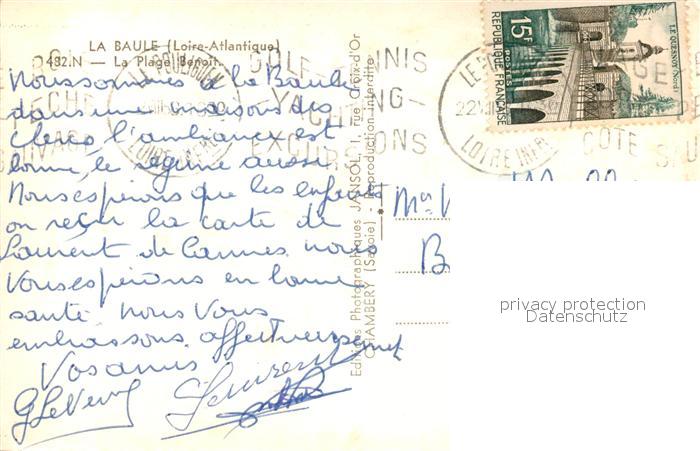 LA BAULE (Loire-Atlantique)
482.N — La Plage Benoît.
Nous sommes a la Baule
dans une maisons des
clercs l'ambiance est
bonne, le regime aussi
Nous espérons que les enfants
on reçu la carte de
Laurent de Cannes. nous
Vous espérons en bonne
santé nous Vous
embrassons affectueusement
Vos amis
Editions Photographiques JANSOL, 1, rue Croix-d'Or
CHAMBERY (Savoie) - Reproduction interdite
GOLF - TENNIS
YACHTING -
EXCURSIONS
LOIRE INFRE
15F
POSTES
REPUBLIQUE FRANÇAISE
LE QUESNOY (Nord)
LOIRE INFRE
COTE SAU
B
privacy protection
Datenschutz